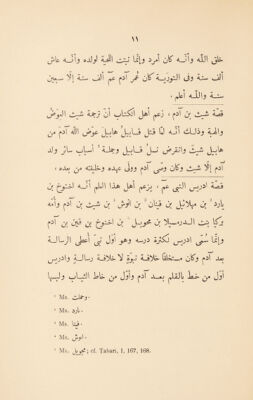 ١١
خلق اللّه وأنّه كان أمرد وإنّما نبتت اللحية لولده وأنّه عاش
ألف سنة وفى التوريّة كان عُمر آدم عمّ ألف سنة إلّا سبعين
سنة واللّه أعلم،
قصّة شيث بن آدم، زعم أهل الكتاب أنّ ترجمة شيث العوَض
والهبة وذلك أنّه لمّا قتل قابيلُ هابيلَ عوّض اللّه آدمَ من
هابيل شيث وانقرض نسلُ قابيل وجملة¹ أنساب سائر ولد
آدم إلّا شيث وكان وصّى آدم وولى عهده وخليفته من بعده،
قصّة ادريس النبى عمّ، يزعم أهل هذا العلم أنّه اخنوخ بن
يارد² بن مهلائيل بن قينان³ بن انوش⁴ بن شيث بن آدم وأمّه
بركيا بنت الدرمسيل بن محويل⁵ بن اخنوخ بن قين بن آدم
وإنّما سُمّى ادريس لكثرة درسه وهو أوّل نبىّ أُعطى الرسالة
بعد آدم وكان مستخلفًا خلافة نبوّة لا خلافة رسالة وادريس
أوّل من خطّ بالقلم بعد آدم وأوّل من خاط الثياب ولبسها
¹ Ms. وحملت.
² Ms. بارد.
³ Ms. قينا.
⁴ Ms. انوس.
⁵ Ms. محويل; cf. Tabari, I, 167, 168.